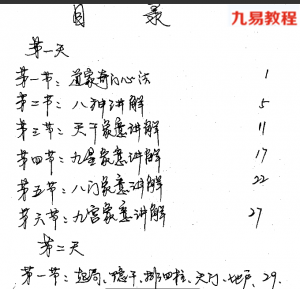 目录
九易教程
第一天
第一节：道家奇门心法 1
第二节：八神讲解 5
第三节：天干象意讲解 11
第四节：九星象意讲解 17
第五节：八门象意讲解 22
第六节：九宫象意讲解 27
第二天
第一节：起局、隐干、排四柱、天门、地户、29.